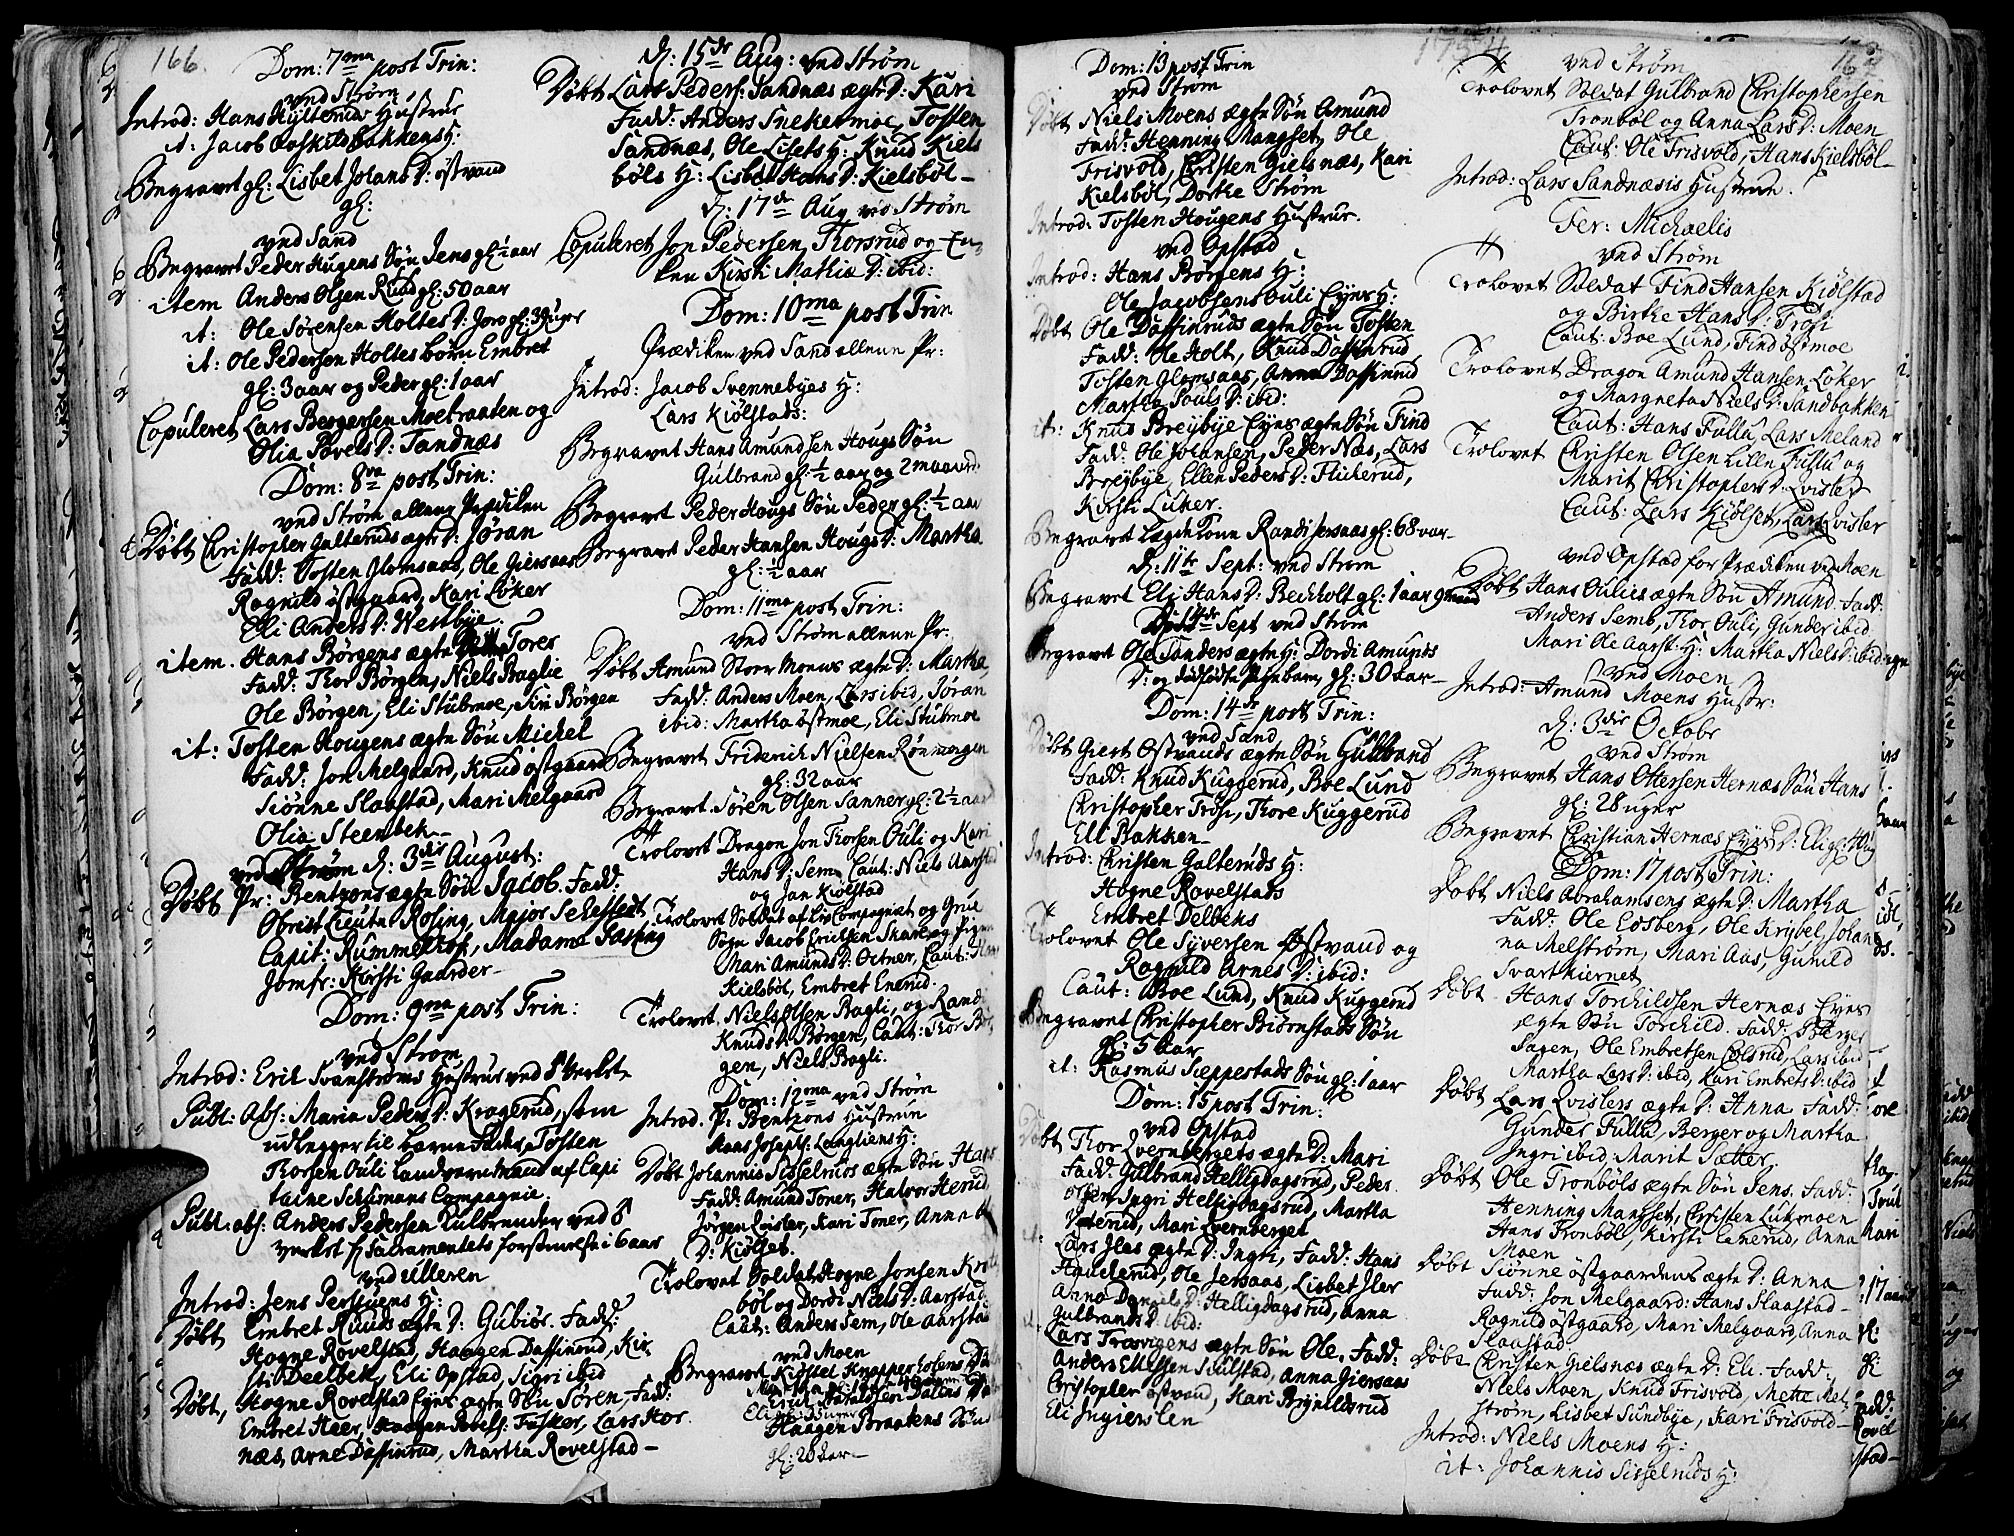 166.
Dom: 7ma post Trin:
ved Strøm
Introd: Hans Hÿtteruds Hustrue
it: Jacob Oposkildbakkens H:
Begravet gl: Lisbet Johans D: østvand
gl:
ved Sand
Begravet Peder Hugens Søn Jens gl: ½ aar
item Anders Olsen Ruud gl: 50 aar
it: Ole Sørensen Holtes D: Joro gl: 3 Uger
it: Ole Pedersen Holtes børn Embret
gl: 3 aar og Peder gl: 1 aar
Copuleret Lars Bergersen Moebraaten og
Olia Povels D: Sandnæs
Dom: 8va post Trin:
ved Strøm allene Prædiken
Døbt Christopher Galteruds ægte D: Jøran
Fadd: Tosten Glomsaas, Ole Giersaas
Ragnild østgaard, Kari Løker
Eli Anders D: Westbÿe.
item. Hans Børgens ægte Tores
Fadd: Thor Børgen, Niels Baglie
Ole Børgen, Eli Stubmoe, Siri Børgen
it: Tosten Hougens ægte Søn Michel
Fadd: Jon Melgaard, Knud østgaard
Siønne Slaastad, Mari Melgaard
Olia Steenbek
ved Strøm d: 3die August:
Døbt Pr: Bentzons ægte Søn Jacob. Fadd:
Obrist Lieutn Rosing, Major Scheffest
Capit: Rummelhof, Madame Rasing
Jomfr: Kirsti Gaarder
Dom: 9na post Trin:
ved Strøm
Introd: Erik Svanstrøms Hustrue ved Verket
Publ: Abs: Maria Peders D: Kragerud, som
udlagger til barne Fader Tosten
Thorsen Ouli Landværnsmand af Capi
taine Schumans Compagnie
Publ: abs: Anders Pedersen Kulbrender ved
verket f: Sacramentets forsømelse i 6 aar
ved Ulleren
Introd: Jens Perstuens H:
Døbt Embret Ruuds ægte D: Gubiør. Fadd:
Hogne Rovelstad, Haagen Daffinrud, Kir
sti Deelbek, Eli Opstad, Sigri ibid
Døbt, Hogne Rovelstad Eÿes ægte Søn Søren, Fadd:
Embret Heer, Haagen Povels: Fusker, Lars Hor
næs, Arne Daffinrud, Martha Rovelstad
d: 15de Aug: ved Strøm
Døbt Lars Peders: Sandnæs ægte D: Kari
Fadd: Anders Snekermoe, Tosten
Sandnæs, Ole Lisets H: Knud Kiels
bøls H: Lisbet Hans D: Kielsbøl
d: 17de Aug ved Strøm
Copuleret Jon Pedersen Thorsrud og En
ken Kirsti Mathiæ D: ibid:
Dom: 10ma post Trin
Prædiken ved Sand allene Pr:
Introd: Jacob Svennebÿes H:
Lars Kiølstads:
Begravet Hans Amundsen Hougs Søn
Gulbrand gl: ½ aar og 2 maaned
Begravet Peder Hougs Søn Peder gl: ½ aar
Begravet Peder Hansen Hougs D: Martha
gl: ½ aar
Dom: 11ma post Trin:
ved Strøm allene Pr:
Døbt Amund Storr Moens ægte D: Martha,
Fadd: Anders Moen, Lars ibid, Jøran
ibid: Martha østmoe, Eli Stubmoe
Begravet Friderich Nielsen Rønnongen
gl: 32 aar
Begravet. Søren Olsen Sanner gl: 2½ aar
Trolovet Dragon Jon Thorsen Ouli og Kari
Hans D: Sem Caut: Niels Aarstad
og Jan Kiølstad
Trolovet Soldat af Liv Compagniet og Grue
Sogn Jacob Erichsen Skare og Pigen
Mari Amunds D: Octner, Caut: Hans
Kielsbøl, Embret Enerud.
Trolovet, Niels Olsen Bagli, og Randi
Knuds D: Børgen, Caut: Thor Bør
gen, Niels Bagli.
Dom: 12ma ved Strøm
Introd. Pr Bentzons Hustrue
Hans Joseph: Langliens H:
Døbt Johannis Sisselruds ægte Søn Hans
Fadd: Amund Toner, Halvor Herud
Jørgen Qvisler, Kari Toner, Anna
D: Kiølset.
Trolovet Soldat Hogne Jonsen Kro
bøl og Dordi Niels D: Aarstad
Caut: Anders Sem, Ole Aarstad
ved Moen
Begravet Kirstet Knapper
Eli
Haagen Braatens Søn
gl: 20 ker
1754
Dom: 13 post Trin
ved Strøm
Døbt Niels Moens ægte Søn Amund
Fadd: Henning Mangset, Ole
Frisvold, Christen Gielsnæs, Kari
Kielsbøl, Dorthe Strøm
Introd: Tosten Hougens Hustrue.
ved Opstad
Introd: Hans Børgens H:
Ole Jacobsens Ouli Eÿes H:
Døbt Ole Daffinruds ægte Søn Tosten
Fadd: Ole Holt, Knud Daffinrud
Tosten Glomsaas, Anna Daffinrud
Martha Pouls D: ibid:
it: Knud Breÿbÿe Eÿes ægte Søn Find
Fadd: Ole Johansen, Peder Næs, Lars
Breÿbÿe, Ellen Peders D: Flikerud,
Kirsti Luker.
Begravet Lægdekone Randi Jersaas gl: 68 aar
d: 11te Sept: ved Strøm
Begravet Eli Hans D: Bechholt gl: 1 aar 9 maand
Sept ved Strøm
Begravet Ole Sanders ægte H: Dordi Amunds
D: og dødfødte Pigebarn, gl: 30 aar
Dom: 14de post Trin:
ved Sand
Døbt Giert Østvands ægte Søn Gulbrand
Fadd: Knud Kuggerud, Boe Lund
Christopher Trøfi, Thore Kuggerud
Eli Bakken
Introd: Christen Galteruds H:
Hogne Rovelstads
Embret Delbeks
Trolovet Ole Syversen Østvand og
Ragnild Arnes D: ibid:
Caut: Boe Lund, Knud Kuggerud
Begravet Christopher Biørnstads Søn
gl: 5 aar
it: Rasmus Seppestads Søn gl: 1 aar
Dom: 15 post Trin:
ved Opstad
Døbt Thor Qvernbergets ægte D: Mari
Fadd: Gulbrand Helligdagsrud, Peder
Olsen, Ingri Helligdagsrud, Martha
Veterud, Mari Qvernberget
it: Lars Iles ægte D: Ingri, Fadd: Hans
Haukerud, Ole Jersaas, Lisbet Iler
Anna Daniels D: Helligdagsrud, Anna
Gulbrands D: ibid:
it. Lars Travigens ægte Søn Ole, Fadd:
Anders Ellefsen Skulstad, Anna Giersaas
Christopher østvand, Kari Brynildsrud
Eli Ingierslen
ved Strøm
Trolovet Soldat Gulbrand Christophersen
Tronbøl og Anna Lars D: Moen
Caut: Ole Frisvold, Hans Kielsbøl
Introd: Lars Sandnæsis Hustrue.
Fer: Michaelis
ved Strøm
Trolovet Soldat Find Hansen Kiølstad
og Birthe Hans D: Trøfi
Caut: Boe Lund, Find østmoe
Trolovet Dragon Amund Hansen Løker
og Margneta Niels D: Sandbakken
Caut: Hans Fullu, Lars Meland
Trolovet Christen Olsen Lille Fullu og
Marit Christophers D: Qvisler
Caut: Lars Kiølset, Lars Qvisler
ved Opstad for Prædiken ved Moen
Døbt Hans Oulies ægte Søn Amund. Fadd:
Anders Semb, Thor Ouli, Gunder ibid
Mari Ole Aarst: H: Martha Niels D: ibid
ved Moen
Introd: Amund Moens Hustr:
d: 3die Octobr
ved Strøm
Begravet Hans Ottersen Hernæs Søn Hans
gl: 28 uger
Begravet Christian Hernæs Eÿes D: Eli gl:
Dom: 17 post Trin:
Døbt Niels Abrahamsens ægte D: Martha
Fadd: Ole Eosberg, Ole Krybel, Johan
na Melstrøm, Mari Aas, Gunild
Svartkiernet
Døbt Hans Torchildsen Hernæs Eÿes
ægte Søn Torchild. Fadd: Berger
Sagen, Ole Embretsen Colsrud, Lars ibid
Martha Lars D: ibid, Kari Embrets D: ibid
Døbt Lars Qvislers ægte D: Anna Fadd:
Gunder Fullu, Berger og Martha
Ingri ibid, Marit Sætter
Døbt Ole Tronbøls ægte Søn Jens. Fadd:
Henning Mangset, Christen Lutmoen
Hans Tronbøl, Kirsti Enerud, Anna
Moen
Døbt Siønne østgaardens ægte D: Anna
Fadd: Jon Melgaard: Hans Slaastad
Ragnild østgaard, Mari Melgaard, Anna
Slaastad
Døbt Christen Gielsnæs ægte D: Eli. Fadd:
Niels Moen, Knud Frisvold, Mette Mel
strøm, Lisbet Sundbÿe, Kari Frisvold
Introd: Niels Moens H:
it: Johannis Sisselruds H: